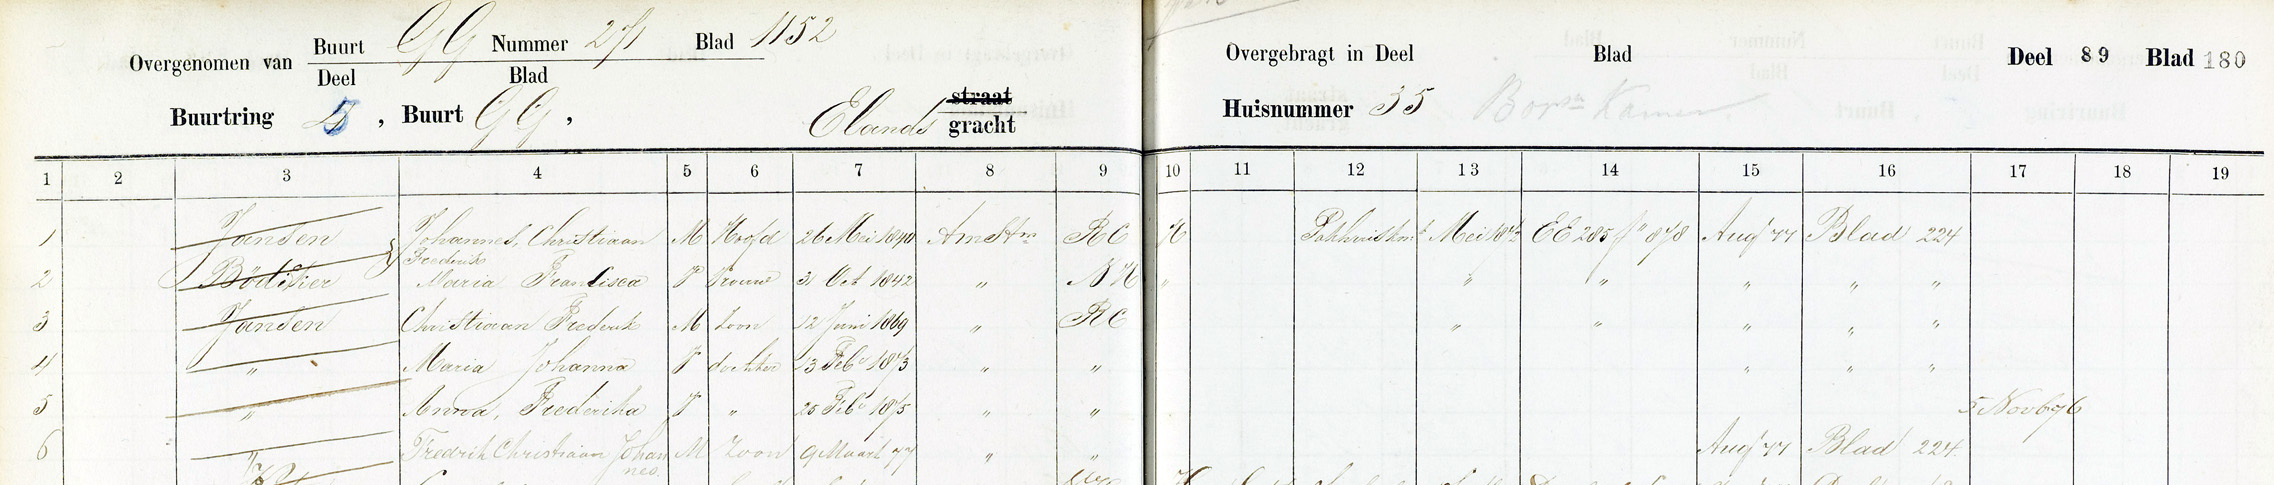 Overgenomen van Buurt GG Nummer 271 Blad 1152
Deel Blad
Buurtring , Buurt GG, Elands straat gracht
Overgebragt in Deel Blad Deel 89 Blad 180
Huisnummer 35 Kamer
1 2 3 4 5 6 7 8 9 10 11 12 13 14 15 16 17 18 19
1 Jansen Johannes, Christiaan Frederik M Hoofd 26 Mei 1840 Amstm RC H Mei EE 285 Aug 77 Blad 224
2 Bödikker Maria Francisca V Vrouw 31 Oct 1842 " NH " " " " " "
3 Jansen Christiaan Frederik M Zoon 12 Juni 1869 " RC " " " " "
4 " Maria Johanna V dochter 13 Feb 1873 " " " " "
5 " Anna, Frederika V " 25 Feb 1875 " " 5 Novb 76
6 " Fredrik Christiaan Johannes M Zoon 9 Maart 77 " " Aug 77 Blad 224